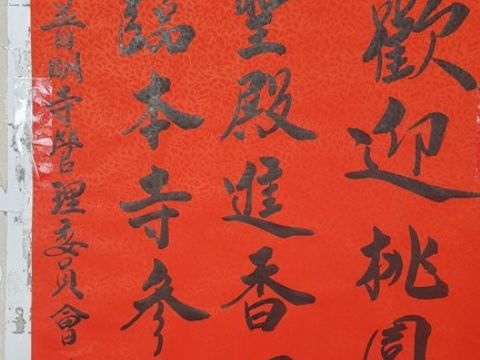 歡迎桃園
聖殿進香
臨本寺參
普明寺管理委員會